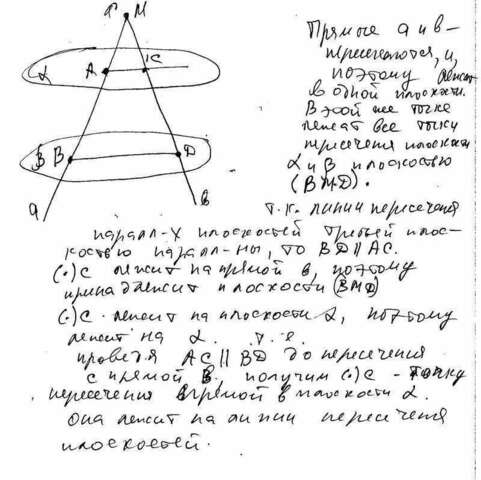 т. М
α A C
β B D
a в
Прямые а и в -
пересекаются, и,
поэтому лежат
в одной плоскости.
В этой же точке
лежат все точки
пересечения плоскости
α и β плоскостью
(BMD).
т.к. линии пересечения
паралл-х плоскостей третьей плос-
костью паралл-ны, то BD ∥ AC.
(·)C лежит на прямой в, поэтому
принадлежит плоскости (BMD)
(·)C лежит на плоскости α, поэтому
лежит на α. т.е.
проведя AC ∥ BD до пересечения
с прямой в, получим (·)C - точку
пересечения прямой в плоскости α.
Она лежит на линии пересечения
плоскостей.